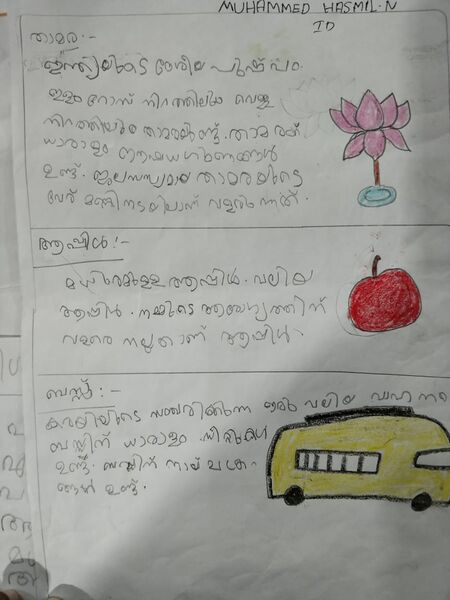 MUHAMMED HASMIL.N
1D
താമര:-
ഇന്ത്യയുടെ ദേശീയ പുഷ്പം.
ഇളം റോസ് നിറത്തിലും വെള്ള
നിറത്തിലും താമരയുണ്ട്. താമരക്ക്
ധാരാളം ഔഷധ ഗുണങ്ങൾ
ഉണ്ട്. ജലസസ്യമായ താമരയുടെ
വേര് മണ്ണിനടിയിലാണ് വളരുന്നത്.
ആപ്പിൾ:-
മധുരമുള്ള ആപ്പിൾ. വലിയ
ആപ്പിൾ. നമ്മുടെ ആരോഗ്യത്തിന്
വളരെ നല്ലതാണ് ആപ്പിൾ.
ബസ്സ്:-
കരയിലൂടെ സഞ്ചരിക്കുന്ന ഒരു വലിയ വാഹനമാ
ബസ്സിന് ധാരാളം സീറ്റുകൾ
ഉണ്ട്. ബസ്സിന് നാല് ചക്ര
ങ്ങൾ ഉണ്ട്.